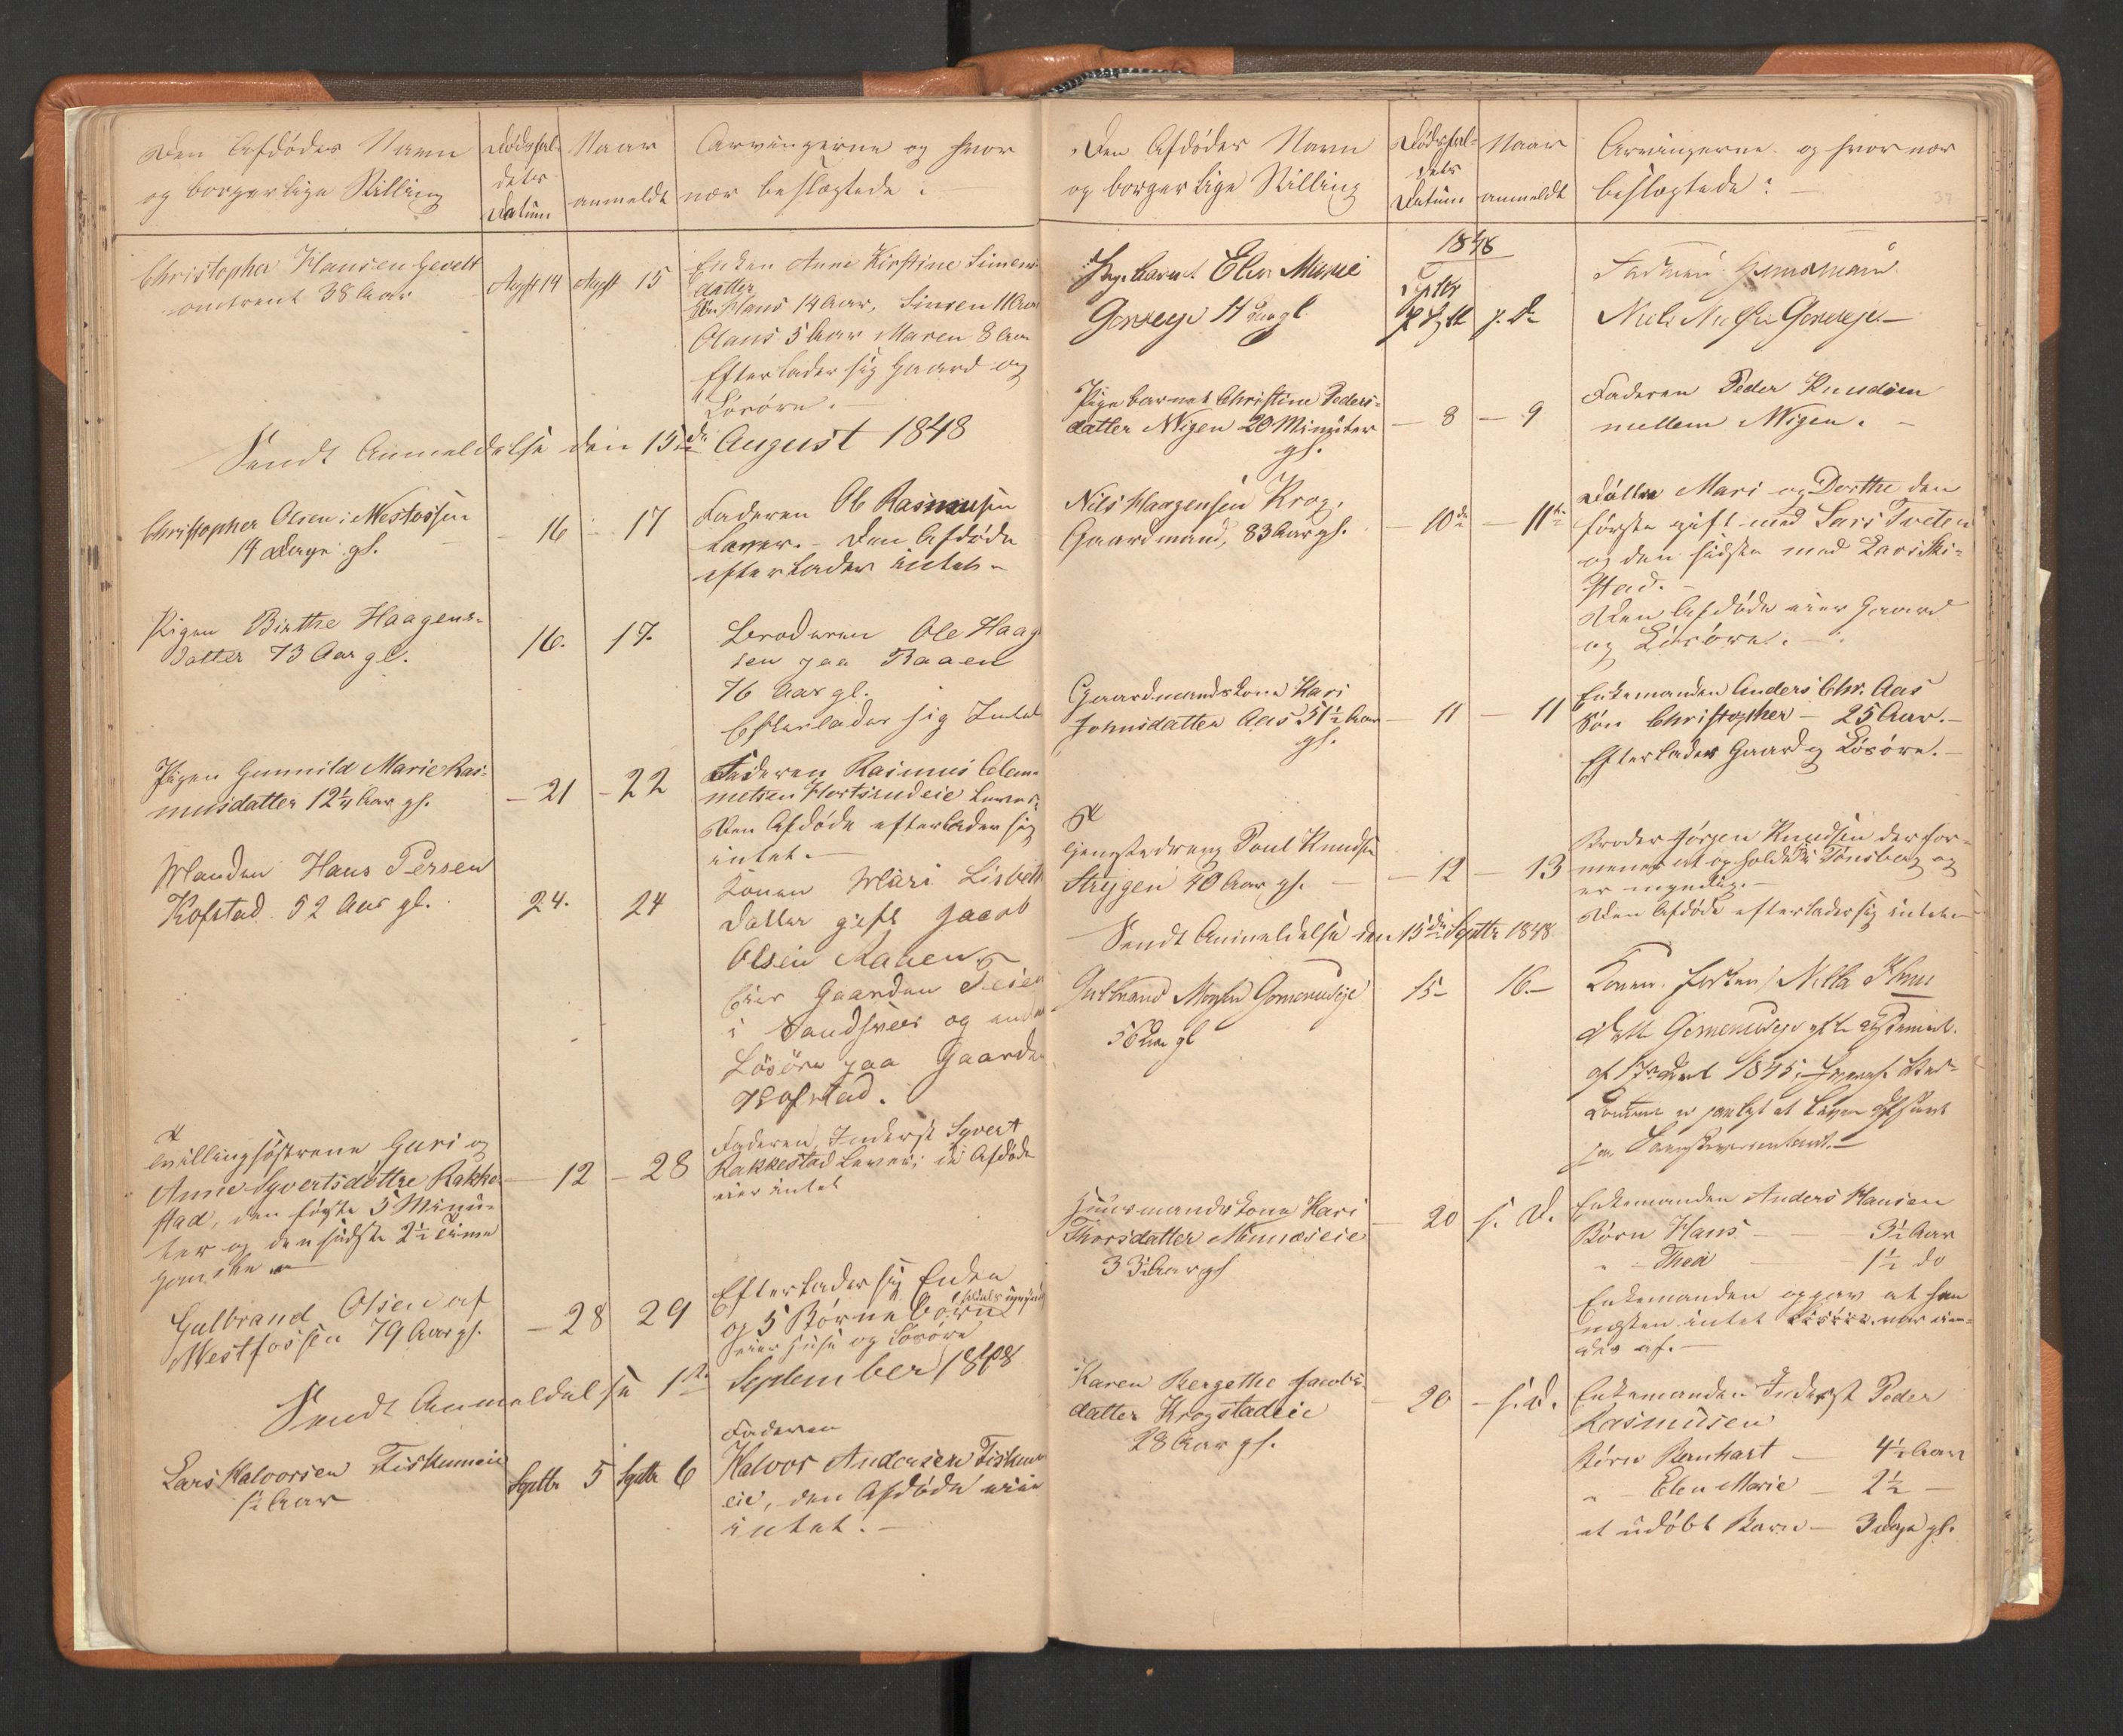 Den Afdødes Navn
og borgerlige Stilling
Dødsfal-
dets
Datum
Naar
anmeldt
Arvingerne og hvor
nær beslægtede:
Christopher Hansen Gevelt
omtrent 38 Aar
Augst 14
Augst 15
Enken Anne Kirstine Simens-
datter
Hans 14 Aar, Simen 11 Aar
Olaus 5 Aar Maren 8 Aar
Efterlader sig Gaard og
Løsøre.
Sendt Anmeldelse den 15de August 1848
Christopher Olsen i Westfossen
14 Dage gl.
- 16 - 17
Faderen Ole Rasmusen
Lever. - Den Afdøde
efterlader intet -
Pigen Birthe Haagens-
datter 73 Aar gl.
16. 17.
Broderen Ole Haag
sen paa Raaen
76 Aar gl.
Efterlader sig Intet
Pigen Gunnild Marie Ras-
musdatter 12¼ Aar gl.
- 21 - 22
Faderen Rasmus Clem-
metsen Hortsrudeie Lever.
Den Afdøde efterlader sig
intet.
Manden Hans Persen
Kofstad 52 Aar gl.
24. 24
Konen Mari Lisbeth
Datter gift Jacob
Olsen Raaen
Eier Gaarden
i Sandsvær og
Løsøre paa Gaarden
Kofstad.
Tvillingsøstrene Guri og
Anne Syvertsdøttre Rakke-
stad, den første 5 Minu-
ter og den sidste 2½ Time
gamle
- 12 - 28
Faderen, Inderst Syvert
Rakkestad Lever; de Afdøde
eier intet
Gulbrand Olsen af
Westfossen 79 Aar gl.
- 28 29
Efterlader sig Enken
og 5 Børnebørn
eier Huse og Løsøre
Sendt Anmeldelse 1ste September 1848
Lars Halvorsen Fiskumeie
½ Aar
Septbr 5 Septbr 6
Faderen
Halvor Andersen Fiskum
eie, den Afdøde eier
intet. -
Den Afdødes Navn
og borgerlige Stilling
Dødsfal-
dets
Datum
Naar
anmeldt
Arvingerne og hvor nær
beslægtede:
37
1848
Pigebarnet Elen Marie
4 gl
Septbr
s. D.
Faderen Huusmand
Pigebarnet Christine Peders-
datter Wigen 20 Minuter
gl.
- 8 - 9
Faderen Peder Knudsen
mellem Wigen. -
Nils Haagensen Krog,
Gaardmand, 83 Aar gl.
- 10de - 11te
Døttre Mari og Dorthe den
første gift med Lars Tveten
og den sidste med Lars Ski-
stad.
Den Afdøde eier Gaard
og Løsøre. -
Gaardmandskone Kari
Johnsdatter Aas 51½ Aar
gl.
- 11 - 11
Enkemanden Anders Chr. Aas
Søn Christopher - 25 Aar. -
Efterlader Gaard og Løsøre. -
Tjenestedreng Poul Knudsen
Strygen 40 Aar gl. -
- 12 - 13
Broder Jørgen Knudsen der for-
menes at opholde sig i Tønsberg og
er myndig. -
Den Afdøde efterlader sig intet
Sendt Anmeldelse den 15de Septbr 1848
Gulbrand
56 Aar gl
15- 16-
Konen
1845
Huusmandskone Kari
Thorsdatter Munaseie
33 Aar gl
- 20 s. D.
Enkemanden Anders Hansen
Børn Hans - 3½ Aar
" - Thea - 1½ do
Enkemanden opgav at han
næsten intet Løsøre var eien-
des af. -
Karen Bergethe Jacobs-
datter Krogstadeie
28 Aar gl.
- 20 - s. D.
Enkemanden Inderst Peder
Rasmusen
Børn Bernhart - 4½ Aar
" - Elen Marie - 2½ -
et udøbt Barn - 3 Dage gl.